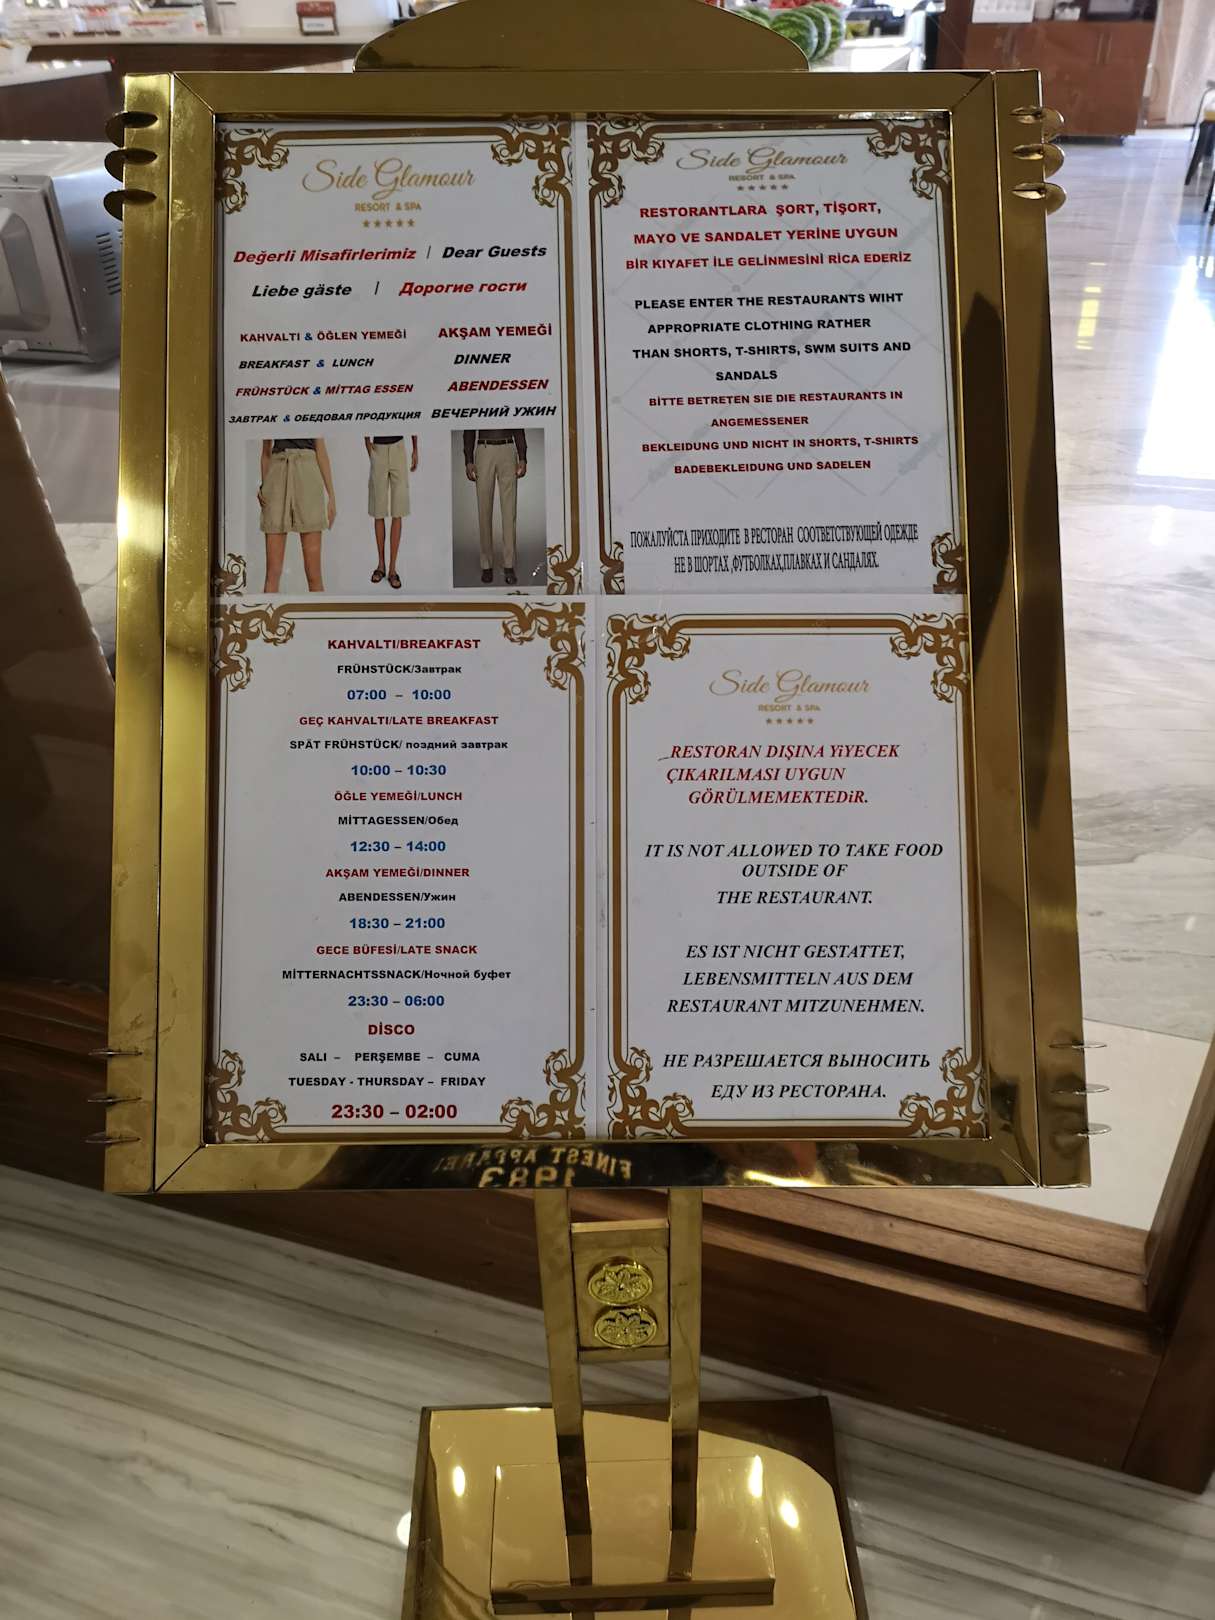 Side Glamour
RESORT & SPA
Değerli Misafirlerimiz | Dear Guests
Liebe gäste | Дорогие гости
KAHVALTI & ÖĞLEN YEMEĞİ
BREAKFAST & LUNCH
FRÜHSTÜCK & MİTTAG ESSEN
ЗАВТРАК & ОБЕДОВАЯ ПРОДУКЦИЯ
AKŞAM YEMEĞİ
DINNER
ABENDESSEN
ВЕЧЕРНИЙ УЖИН
Side Glamour
RESORT & SPA
RESTORANTLARA ŞORT, TİŞORT,
MAYO VE SANDALET YERİNE UYGUN
BİR KIYAFET İLE GELİNMESİNİ RİCA EDERİZ
PLEASE ENTER THE RESTAURANTS WIHT
APPROPRIATE CLOTHING RATHER
THAN SHORTS, T-SHIRTS, SWM SUITS AND
SANDALS
BİTTE BETRETEN SIE DIE RESTAURANTS IN
ANGEMESSENER
BEKLEIDUNG UND NICHT IN SHORTS, T-SHIRTS
BADEBEKLEIDUNG UND SADELEN
ПОЖАЛУЙСТА ПРИХОДИТЕ В РЕСТОРАН СООТВЕТСТВУЮЩЕЙ ОДЕЖДЕ
НЕ В ШОРТАХ ,ФУТБОЛКАХ,ПЛАВКАХ И САНДАЛЯХ.
KAHVALTI/BREAKFAST
FRÜHSTÜCK/Завтрак
07:00 – 10:00
GEÇ KAHVALTI/LATE BREAKFAST
SPÄT FRÜHSTÜCK/ поздний завтрак
10:00 – 10:30
ÖĞLE YEMEĞİ/LUNCH
MİTTAGESSEN/Обед
12:30 – 14:00
AKŞAM YEMEĞİ/DINNER
ABENDESSEN/Ужин
18:30 – 21:00
GECE BÜFESİ/LATE SNACK
MİTTERNACHTSSNACK/Ночной буфет
23:30 – 06:00
DİSCO
SALI – PERŞEMBE – CUMA
TUESDAY - THURSDAY – FRIDAY
23:30 – 02:00
Side Glamour
RESORT & SPA
RESTORAN DIŞINA YiYECEK
ÇIKARILMASI UYGUN
GÖRÜLMEMEKTEDiR.
IT IS NOT ALLOWED TO TAKE FOOD
OUTSIDE OF
THE RESTAURANT.
ES IST NICHT GESTATTET,
LEBENSMITTELN AUS DEM
RESTAURANT MITZUNEHMEN.
НЕ РАЗРЕШАЕТСЯ ВЫНОСИТЬ
ЕДУ ИЗ РЕСТОРАНА.
FINEST APPAREL
1983